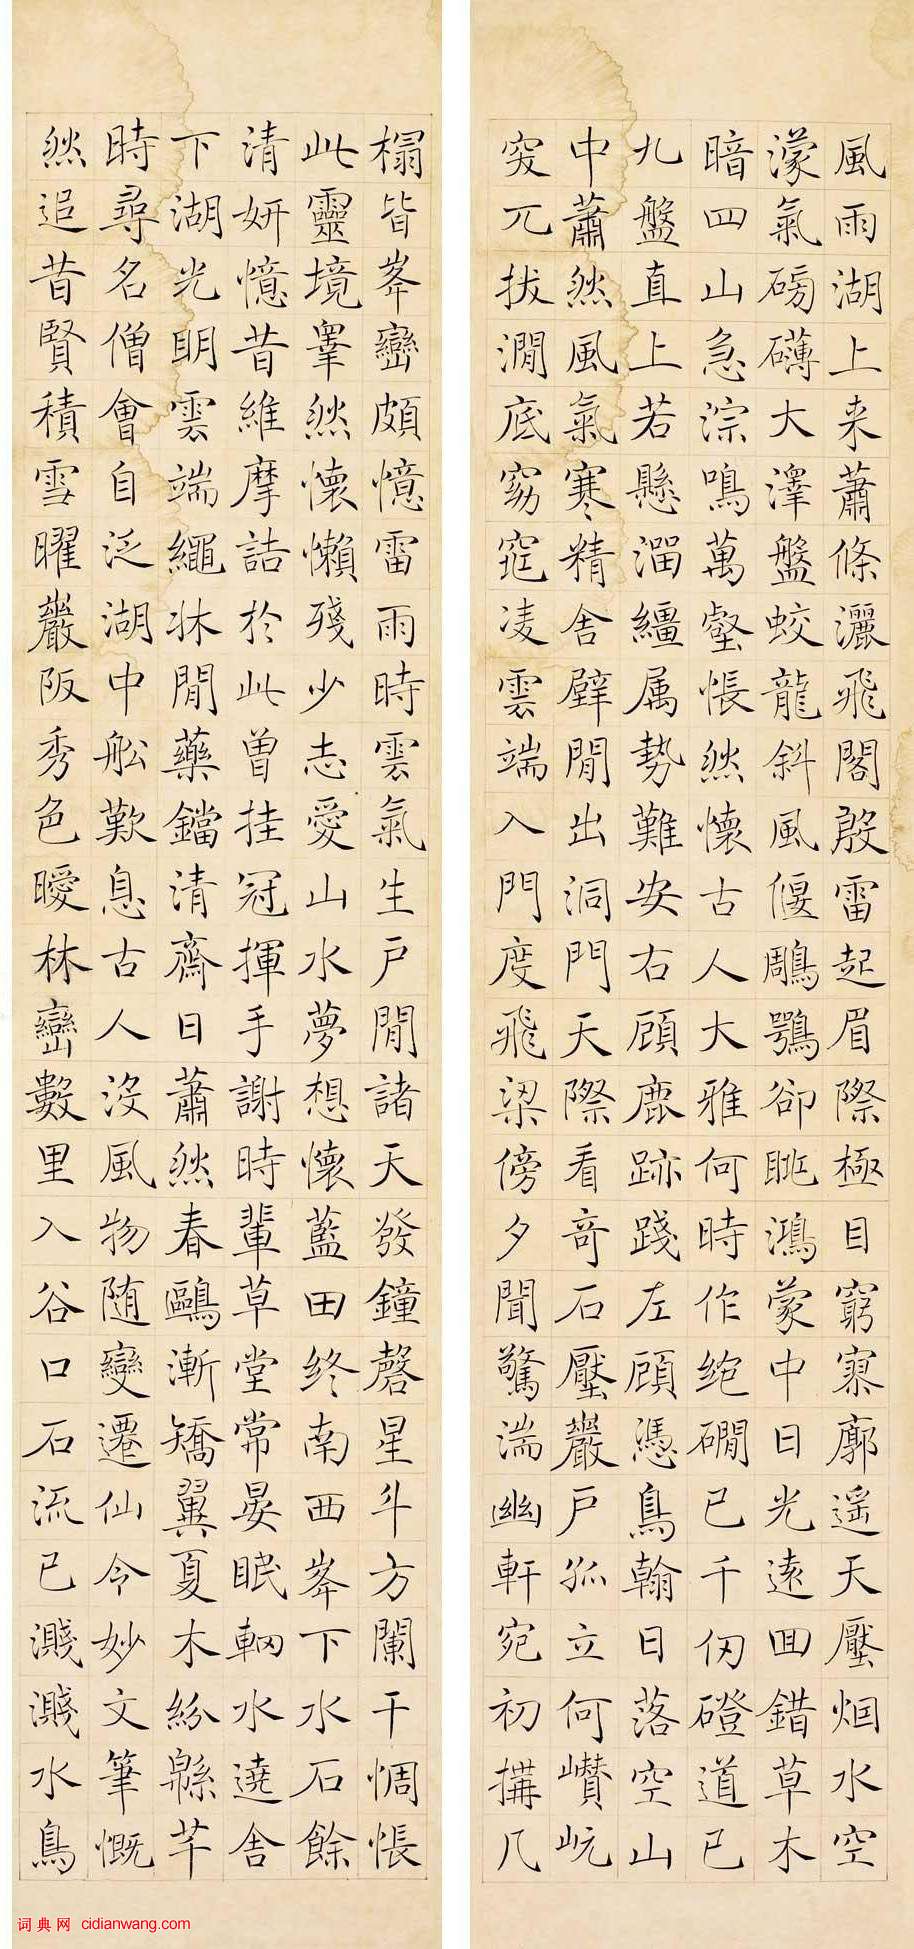 風雨湖上来蕭條灑飛閣殷雷起眉際極目窮寥廓遥天壓烟水空
濛氣磅礴大澤盤蛟龍斜風偃鵰鶚卻眺鴻蒙中日光遠回錯草木
暗四山急淙鳴萬壑悵然懷古人大雅何時作絶磵已千仞磴道已
九盤直上若懸溜繮属勢難安右顧鹿跡踐左顧憑鳥翰日落空山
中蕭然風氣寒精舍壁閒出洞門天際看奇石壓巖戶孤立何巑岏
突兀拔澗底窈窕凌雲端入門度飛梁傍夕聞驚湍幽軒宛初搆几
榻皆峯巒頗憶雷雨時雲氣生戶閒諸天發鐘磬星斗方闌干惆悵
此靈境睪然懷懶殘少志愛山水夢想懷藍田終南西峯下水石餘
清妍憶昔維摩詰於此曾挂冠揮手謝時輩草堂常晏眠輞水遶舍
下湖光明雲端繩牀閒藥鐺清齋日蕭然春鷗漸矯翼夏木紛緜芊
時尋名僧會自泛湖中舩歎息古人沒風物随變遷仙令妙文筆慨
然追昔賢積雪曜巖阪秀色曖林巒數里入谷口石流已濺濺水鳥
词典网 cidianwang.com